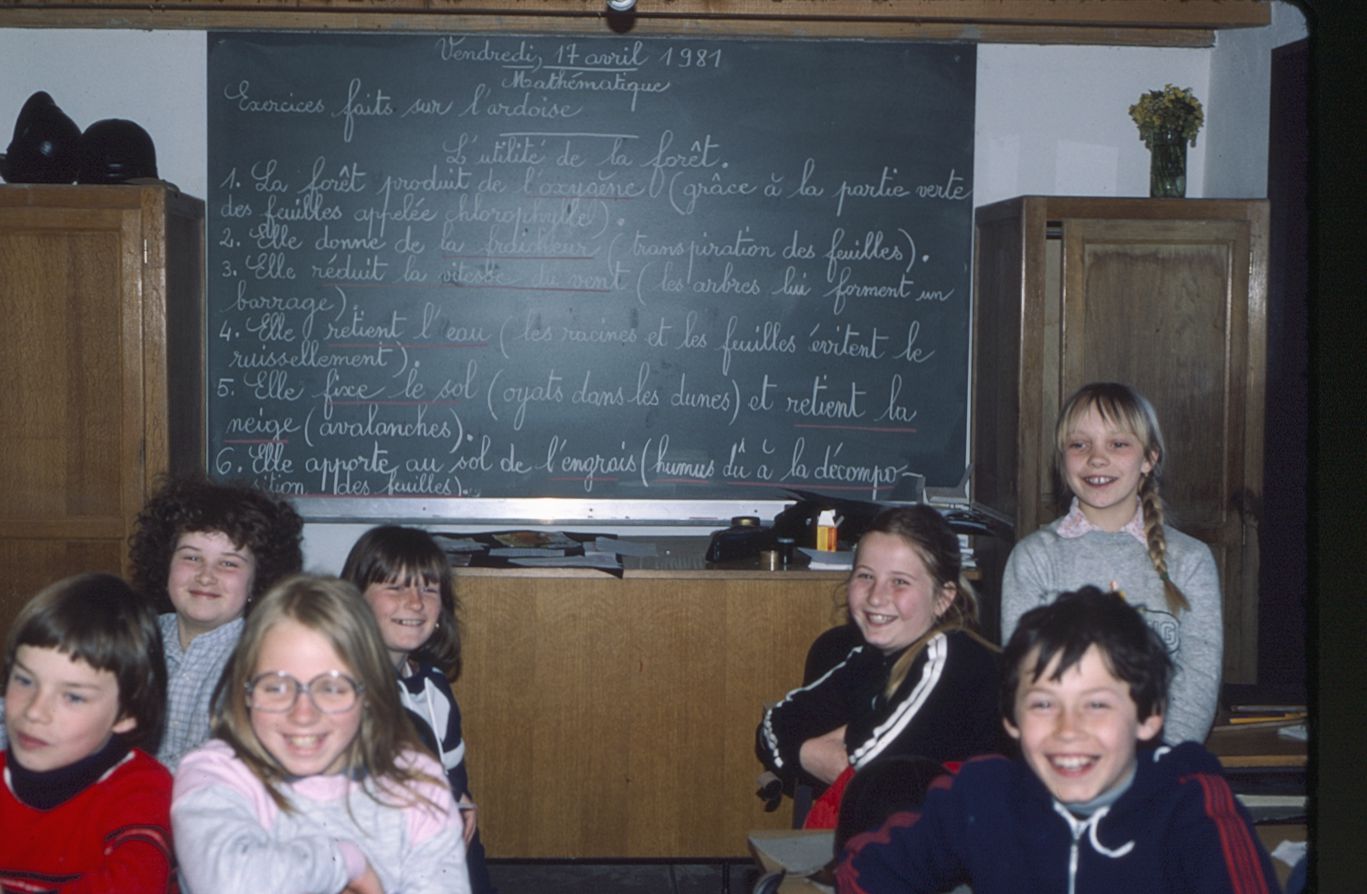 Vendredi, 17 avril 1981
Mathématique
Exercices faits sur l'ardoise
L'utilité de la forêt.
1. La forêt produit de l'oxygène (grâce à la partie verte
des feuilles appelée chlorophylle).
2. Elle donne de la fraîcheur (transpiration des feuilles).
3. Elle réduit la vitesse du vent (les arbres lui forment un
barrage).
4. Elle retient l'eau (les racines et les feuilles évitent le
ruissellement).
5. Elle fixe le sol (oyats dans les dunes) et retient la
neige (avalanches).
6. Elle apporte au sol de l'engrais (humus dû à la décompo-
sition des feuilles).